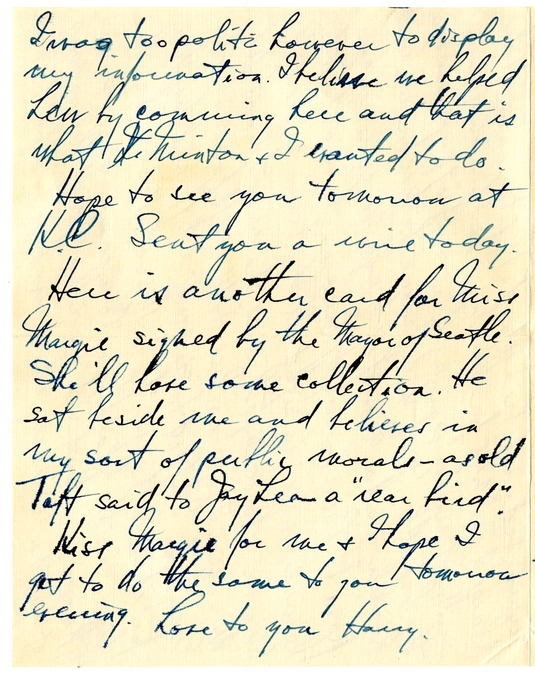 I was too polite however to display
my information. I believe we helped
him by comming here and that is
what Minton & I wanted to do.
Hope to see you tomorrow at
K.C. Sent you a wire today.
Here is another card for Miss
Margie signed by the Mayor of Seatle.
She'll have some collection. He
sat beside me and believes in
my sort of public morals – as old
Taft said to Jay Lee a "rear bird".
Kiss Margie for me & I hope I
get to do the same to you tomorrow
evening. Love to you Harry.